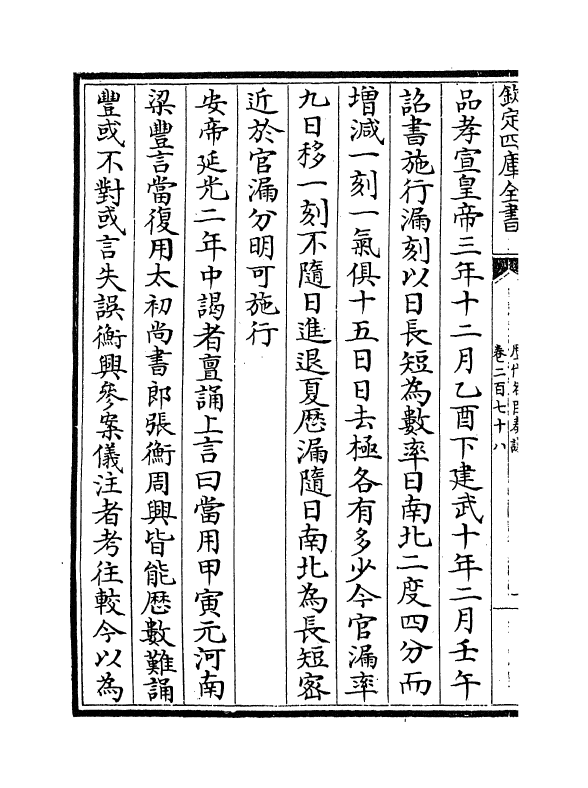 欽定四庫全書
歷代名臣奏議
卷二百七十八
品孝宣皇帝三年十二月乙酉下建武十年二月壬午
詔書施行漏刻以日長短為數率日南北二度四分而
增減一刻一氣俱十五日日去極各有多少今官漏率
九日移一刻不隨日進退夏歴漏隨日南北為長短宻
近於官漏分明可施行
安帝延光二年中謁者亶誦上言曰當用甲寅元河南
梁豐言當復用太初尚書郎張衡周興皆能歴數難誦
豐或不對或言失誤衡興參案儀注者考往較今以為